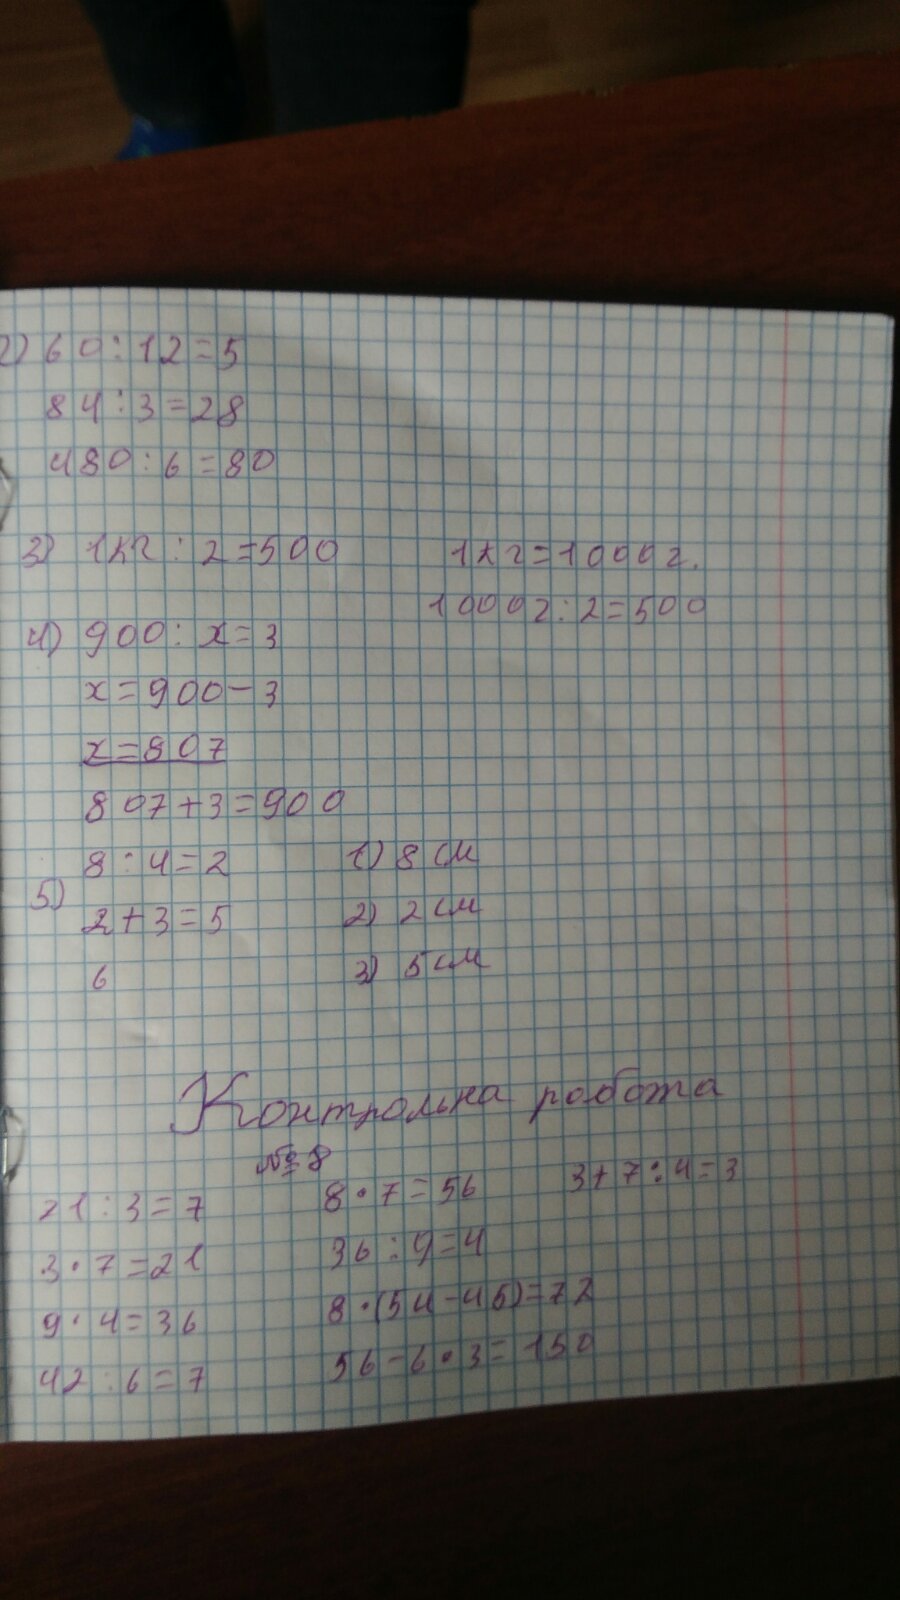 2) 60:12=5
84:3=28
480:6=80
3) 1кг:2=500 1кг=1000г.
1000г:2=500
4) 900:х=3
х=900-3
х=807
807+3=900
5) 8:4=2 1) 8 см
2+3=5 2) 2 см
6 3) 5 см
Контрольна робота
№8
21:3=7 8·7=56 3+7:4=3
3·7=21 36:9=4
9·4=36 8·(54-45)=72
42:6=7 56-6·3=150